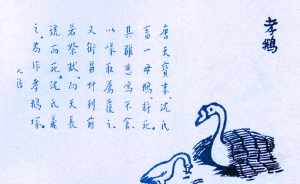 孝鵝
唐天寶末沈氏
畜一母鵝將死
其雛悲鳴不食
以喙取薦覆之
又銜芻草列前
若祭狀向天長
號而死沈氏義
之為作孝鵝塚